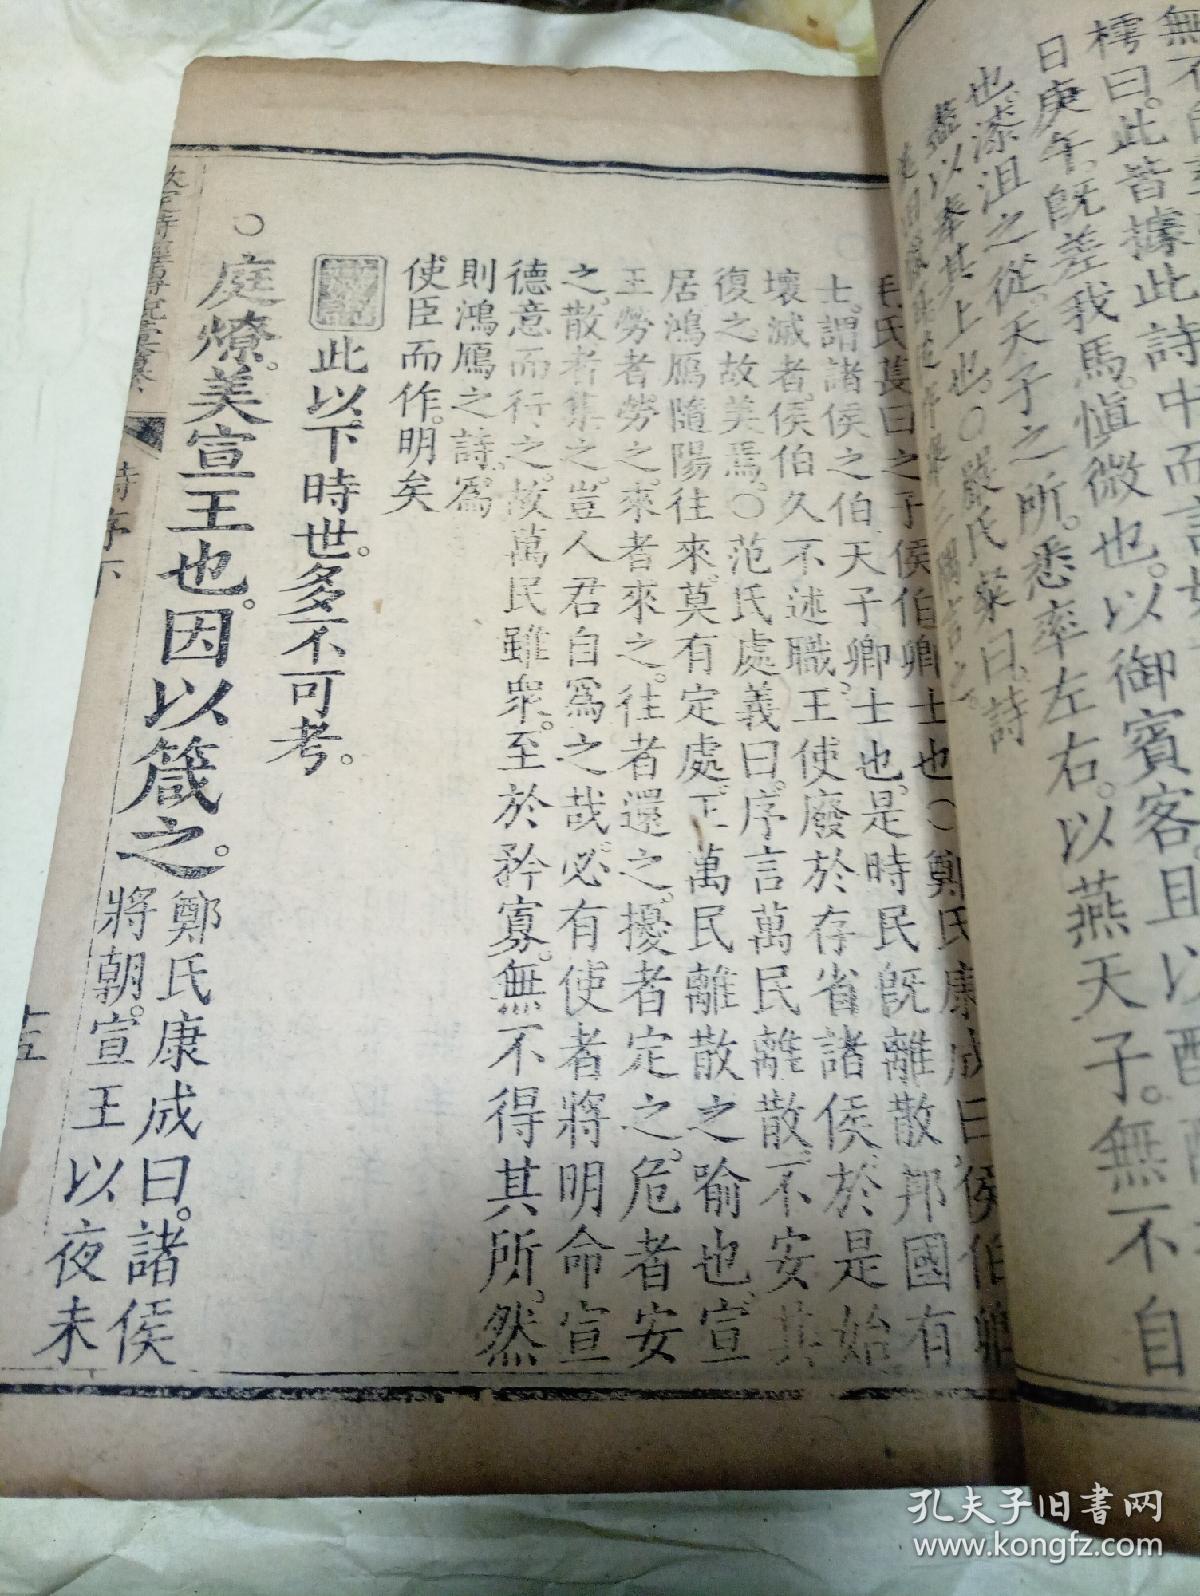 樗曰。此皆據此詩中而言
日庚午。旣差我馬。愼微也。以御賓客。且以
也。漆沮之從。天子之所。悉率左右。以燕天子。無不自
蓋以奉其上也。〇嚴氏粲曰。詩
毛氏萇曰之子侯伯卿士也〇鄭氏康成曰侯伯卿
士。謂諸侯之伯天子卿士也。是時民旣離散邦國有
壞滅者。侯伯久不述職。王使廢於存省諸侯。於是始
復之。故美焉。〇范氏處義曰。序言萬民離散。不安其
居鴻鴈隨陽往來。莫有定處。正萬民離散之喻也。宣
王勞者勞之。來者來之。往者還之。擾者定之。危者安
之。散者集之。豈人君自爲之哉。必有使者將明命宣
德意而行之。故萬民雖衆。至於矜寡。無不得其所。然
則鴻鴈之詩。爲
使臣而作。明矣
此以下時世。多不可考。
〇庭燎。美宣王也。因以箴之。
鄭氏康成曰。諸侯
將朝。宣王以夜未
詩序下
十五
孔夫子旧書网
www.kongfz.com